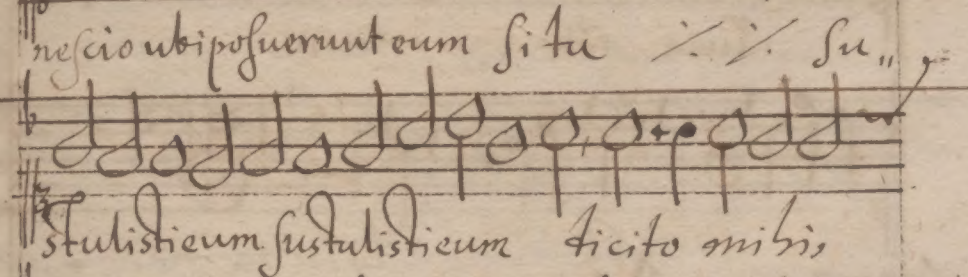 nescio ubi posuerunt eum si tu ·/· ·/· su„
stulisti eum sustulisti eum dicito mihi,